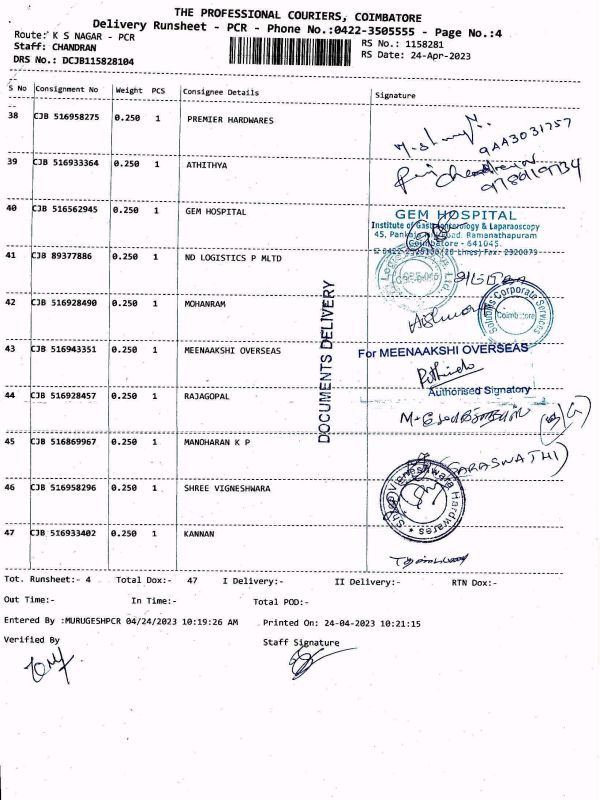 THE PROFESSIONAL COURIERS, COIMBATORE
Delivery Runsheet - PCR - Phone No.:0422-3505555 - Page No.:4
Route: K S NAGAR - PCR
RS No.: 1158281
Staff: CHANDRAN
RS Date: 24-Apr-2023
DRS No.: DCJB115828104
S No Consignment No Weight PCS Consignee Details Signature
38 CJB 516958275 0.250 1 PREMIER HARDWARES
9AA3031757
39 CJB 516933364 0.250 1 ATHITHYA
40 CJB 516562945 0.250 1 GEM HOSPITAL
GEM HOSPITAL
Institute of Gastroenterology & Laparoscopy
45, Pankaja Road, Ramanathapuram
Coimbatore - 641045.
41 CJB 89377886 0.250 1 ND LOGISTICS P MLTD
42 CJB 516928490 0.250 1 MOHANRAM
Solutions Corporate Services
Coimbatore
DOCUMENTS DELIVERY
43 CJB 516943351 0.250 1 MEENAAKSHI OVERSEAS
For MEENAAKSHI OVERSEAS
Authorised Signatory
44 CJB 516928457 0.250 1 RAJAGOPAL
45 CJB 516869967 0.250 1 MANOHARAN K P
(SARASWATHI)
46 CJB 516958296 0.250 1 SHREE VIGNESHWARA
Shree Vigneshwara Hardwares
47 CJB 516933402 0.250 1 KANNAN
Tot. Runsheet:- 4 Total Dox:- 47 I Delivery:- II Delivery:- RTN Dox:-
Out Time:- In Time:- Total POD:-
Entered By :MURUGESHPCR 04/24/2023 10:19:26 AM Printed On: 24-04-2023 10:21:15
Verified By Staff Signature